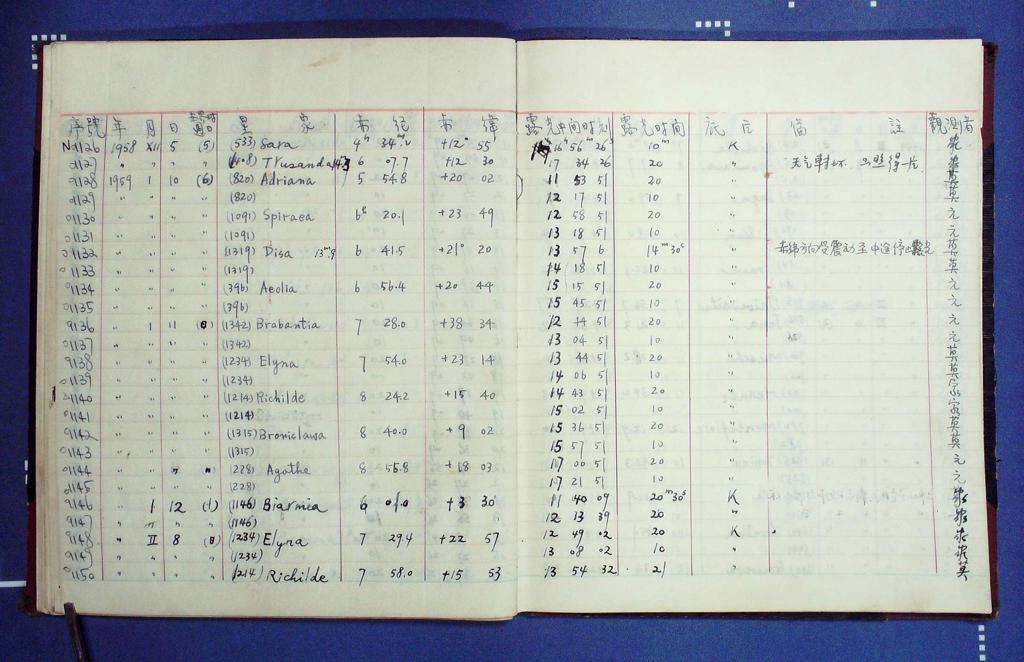 序號 年 月 日 世界時週日 星 象 赤 经 赤 緯 露光中间时刻 露光时间 底片 備 註 觀測者
No1126 1958 XII 5 (5) (533) Sara 4h 34m. +12° 55' 16h 56m 26s 10m K
1127 " " " " Trusanda 6 07.7 +12 30 17 34 26 20 " 天气轉坏
1128 1959 1 10 (6) (820) Adriana 5 54.8 +20 02 11 53 51 20 " 莫
1129 " " " " (820) 12 17 51 10 " 莫
1130 " " " " (1091) Spiraea 6h 20.1 +23 49 12 58 51 20 " 元
1131 " " " " (1091) 13 18 51 10 " 元
1132 " " " " (1319) Disa 13m.9 6 41.5 +21° 20 13 57 6 14m30s " 赤緯方向受震动至中途停止露光 莫
1133 " " " " (1319) 14 18 51 10 " 莫
1134 " " " " (396) Aeolia 6 56.4 +20 44 15 15 51 20 " 元
1135 " " " " (396) 15 45 51 10 " 元
1136 " 1 11 (日) (1342) Brabantia 7 28.0 +38 34 12 44 51 20 " 元
1137 " " " (1342) 13 04 51 10 " 元
1138 " " " " (1234) Elyna 7 54.0 +23 14 13 44 51 20 " 莫
1139 " " " " (1234) 14 06 51 10 " 莫
1140 " " " " (1214) Richilde 8 24.2 +15 40 14 43 51 20 " 家
1141 " " " " (1214) 15 02 51 10 " 家
1142 " " " " (1315) Bronislawa 8 40.0 +9 02 15 36 51 20 " 莫
1143 " " " " (1315) 15 57 51 10 " 莫
1144 " " " " (228) Agathe 8 55.8 +18 03 17 00 51 20 " 元
1145 " " " " (228) 17 21 51 10 " 元
1146 " 1 12 (1) (1146) Biarmia 6 01.0 +3 30 11 40 09 20m30s K
1147 " " " " (1146) 12 13 39 20 "
1148 " II 8 (日) (1234) Elyna 7 29.4 +22 57 12 49 02 20 K
1149 " " " " (1234) 13 08 02 10 "
1150 " " " " (1214) Richilde 7 58.0 +15 53 13 54 32 21 " 莫